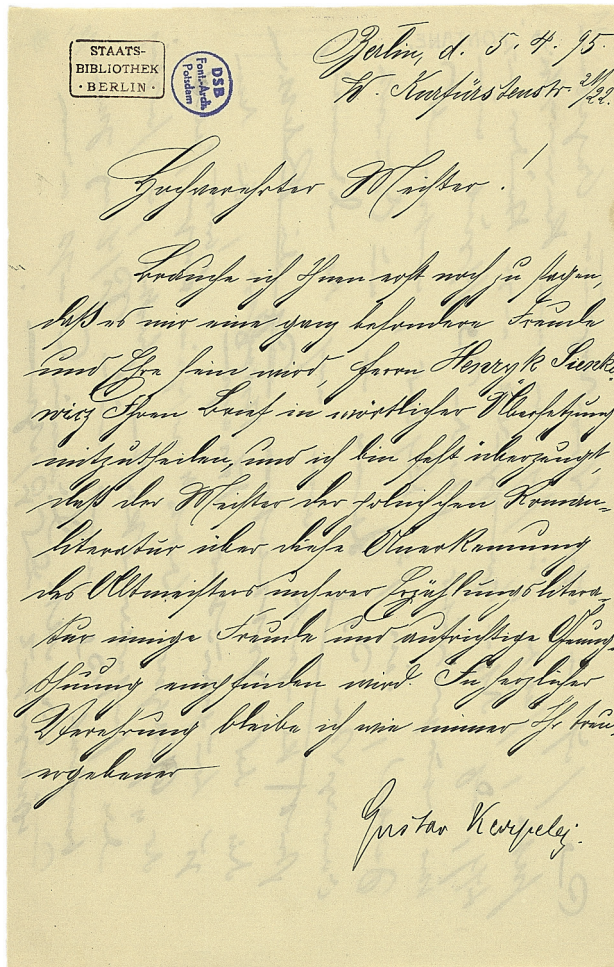 STAATS-
BIBLIOTHEK
· BERLIN ·
DSB
Font.-Arch.
Potsdam
Berlin, d. 5. 4. 95.
W. Kurfürstenstr. 21/22.
Hochverehrter Meister!
Brauche ich Ihnen erst noch zu sagen,
daß es mir eine ganz besondere Freude
und Ehre sein wird, Herrn Henryk Sienk
wicz Ihren Brief in wörtlicher Übersetzung
mitzutheilen, und ich bin fest überzeugt,
daß der Meister der polnischen Roman-
literatur über diese Anerkennung
des Altmeisters unserer Erzählungslitera-
tur innige Freude und aufrichtige Genug-
thuung empfinden wird. In herzlicher
Verehrung bleibe ich wie immer Ihr treu
ergebener
Gustav Karpeles.